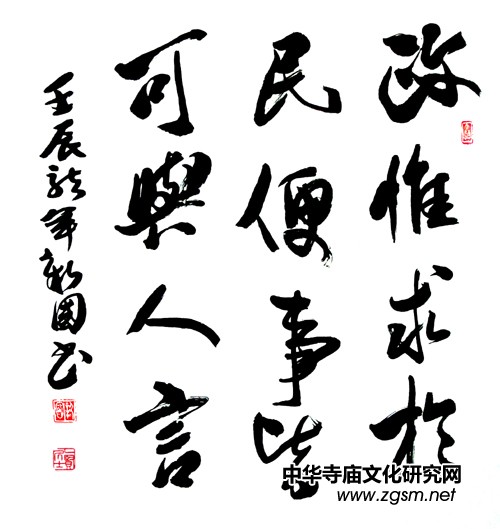 政惟求於
民便事皆
可與人言
壬辰龍年新國书
中华寺庙文化研究网
www.zgsm.net